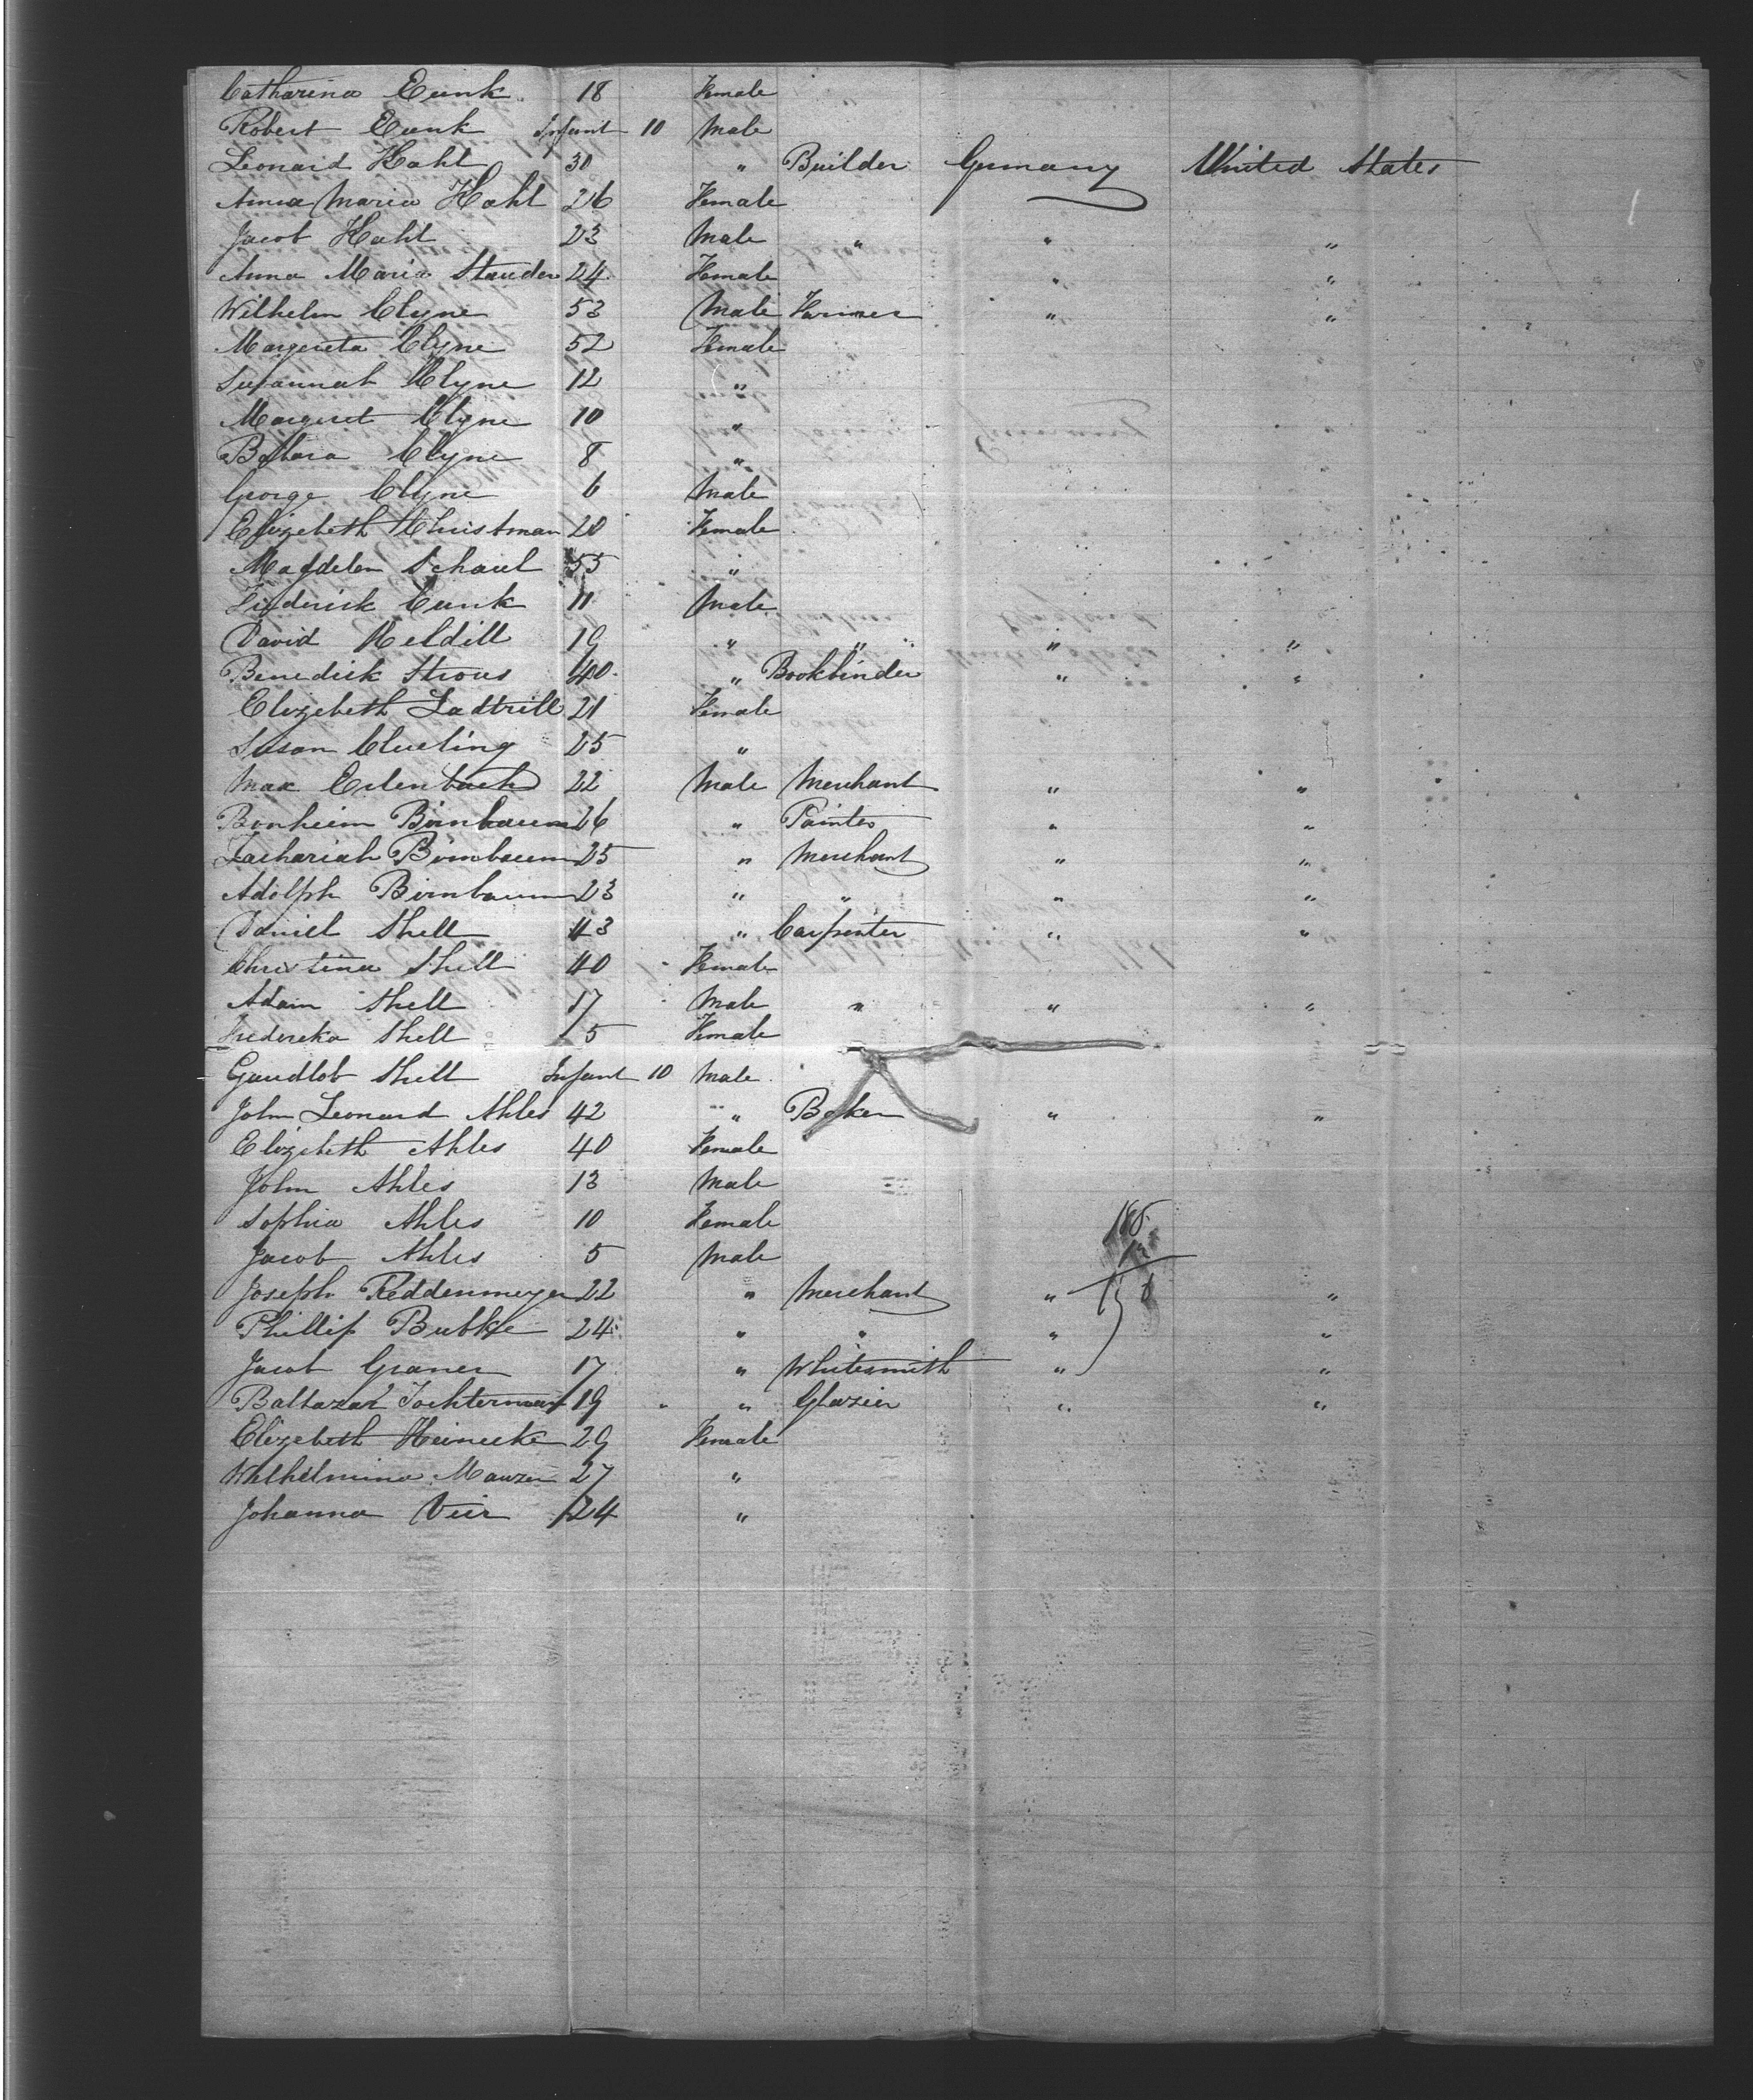 Catharina Eunk 18 Female
Robert Eunk Infant 10 Male
Leonard Hahl 30 " Builder Germany United States
Anna Maria Hahl 26 Female
Jacob Hahl 23 Male " " "
Anna Maria Stauder 24 Female " "
Wilhelm Clyne 53 Male Farmer " "
Margereta Clyne 52 Female
Susannah Clyne 12 "
Margeret Clyne 10 "
Clyne 8 "
George Clyne 6 Male
Elizebeth Christman 20 Female
Magdelen Schaul 55 "
Frederick Cunk 11 Male
David Reldill 19 " " " "
Benedick Strous 40 " Bookbinder " "
Elizebeth Ladtrill 21 Female
Susan Clueling 25 "
Max Erlenbach 22 Male Merchant " "
Bonheim Birnbaum 26 " Painter " "
Zachariah Birnbaum 25 " Merchant " "
Adolph Birnbaum 23 " " " "
Daniel Shell 43 " Carpenter " "
Christina Shell 40 Female
Adam Shell 17 Male " " "
Fredereka Shell 5 Female
Gaudlob Shell Infant 10 Male
John Leonard Ahles 42 " Baker " "
Elizebeth Ahles 40 Female
John Ahles 13 Male
Sophia Ahles 10 Female
Jacob Ahles 5 Male
Joseph Reddenmeyer 22 " Merchant " "
Phillip Bubke 24 " " " "
Jacob Graner 17 " Whitesmith " "
Baltazar Tochterman 19 " Glazier " "
Elizebeth Heinecke 29 Female
Whilhelmina Mauzer 27 "
Johanna Veir 24 "